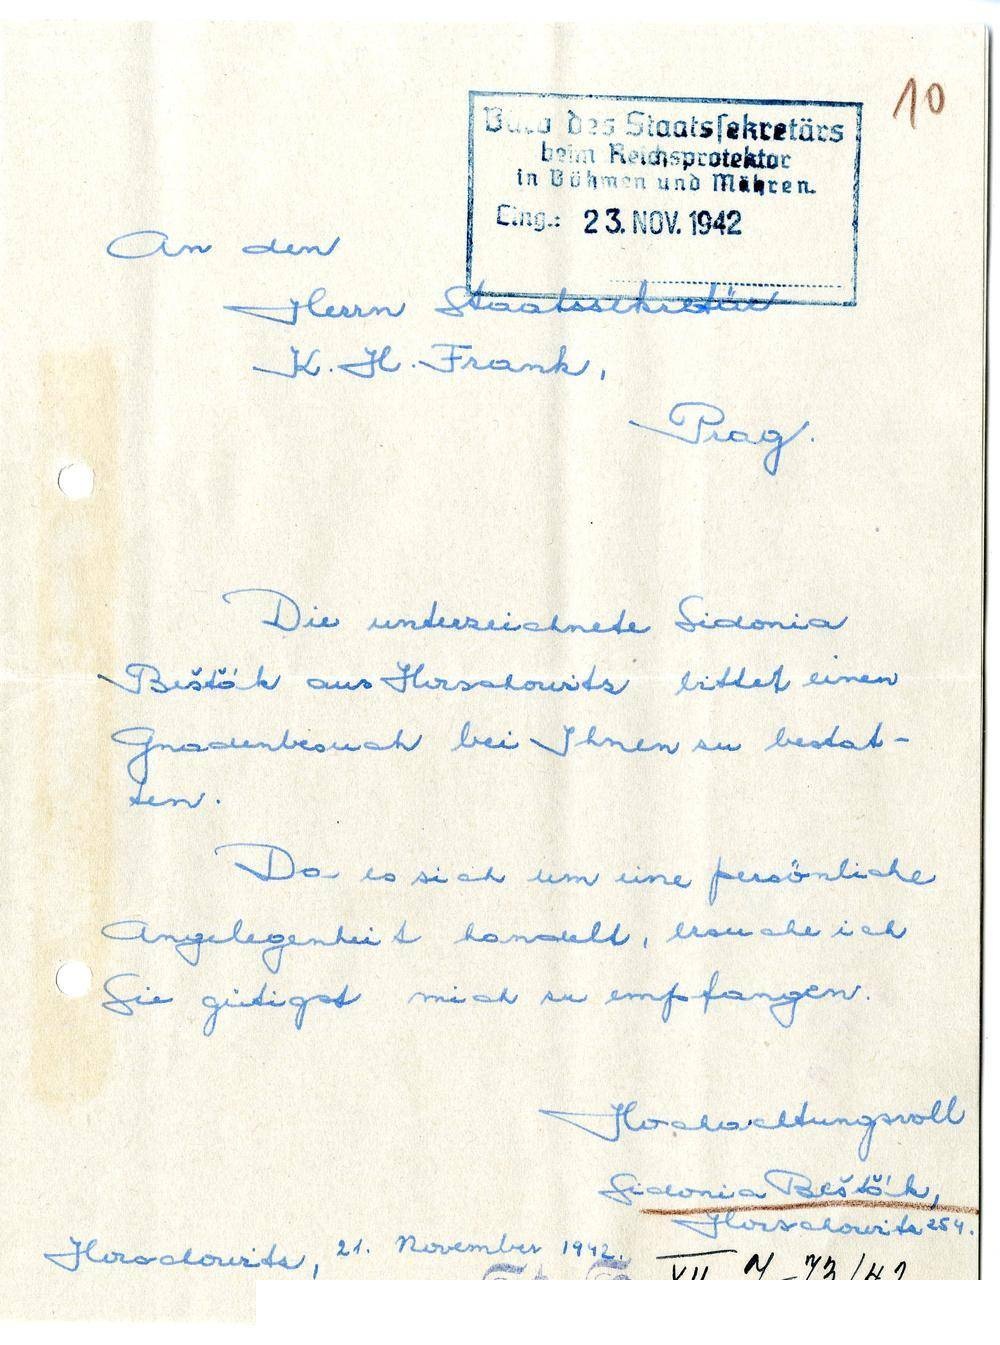 10
Büro des Staatssekretärs
beim Reichsprotektor
in Böhmen und Mähren.
Eing.: 23. NOV. 1942
An den
Herrn Staatssekretär
K. H. Frank,
Prag.
Die unterzeichnete Sidonia
Bešťák aus Horschowitz bittet einen
Gnadenbesuch bei Ihnen zu bestat-
ten.
Da es sich um eine persönliche
Angelegenheit handelt, ersuche ich
Sie gütigst mich zu empfangen.
Hochachtungsvoll
Sidonia Bešťák,
Horschowitz 254.
Horschowitz, 21. November 1942.